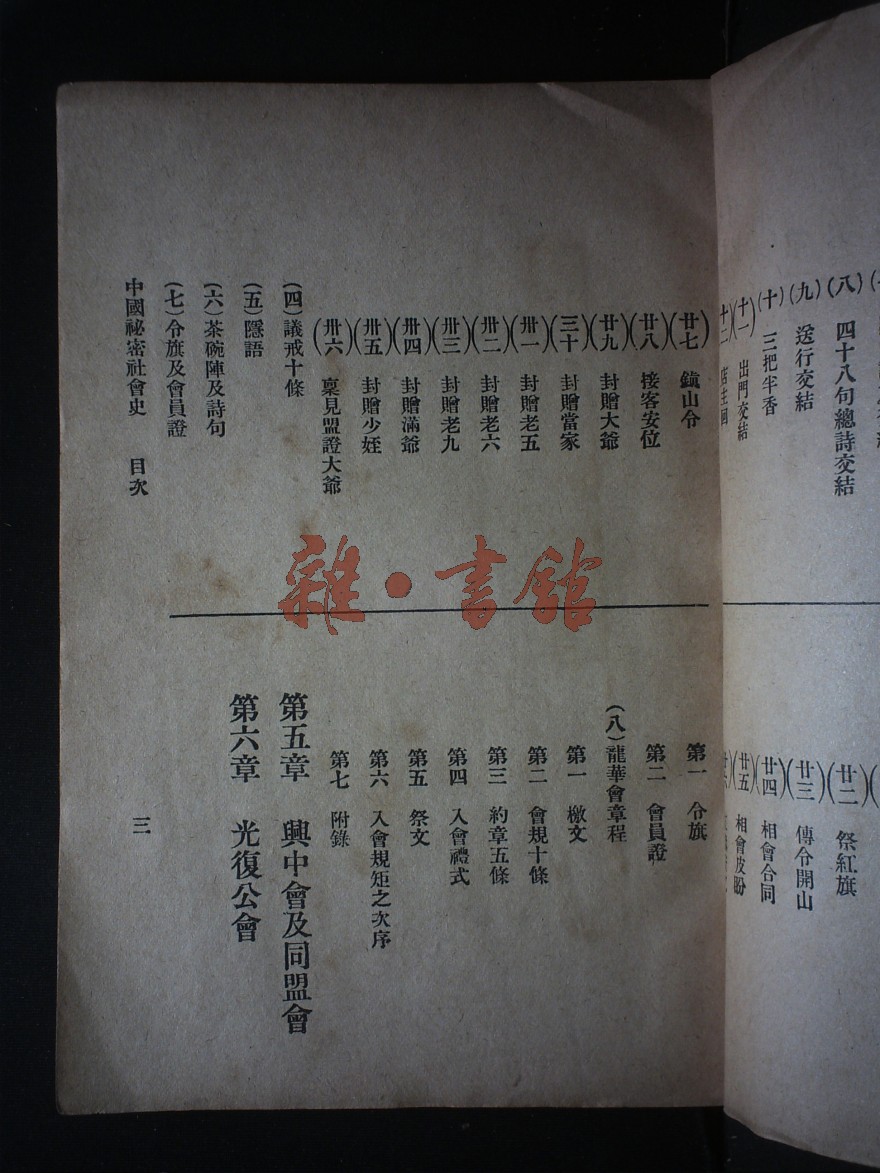 (八) 四十八句總詩交結
(九) 送行交結
(十) 三把半香
(十一) 出門交結
(廿二) 祭紅旗
(廿三) 傳令開山
(廿四) 相會合同
(廿五) 相會皮盼
(廿七) 鎮山令
(廿八) 接客安位
(廿九) 封贈大爺
(三十) 封贈當家
(卅一) 封贈老五
(卅二) 封贈老六
(卅三) 封贈老九
(卅四) 封贈滿爺
(卅五) 封贈少姪
(卅六) 稟見盟證大爺
(四) 議戒十條
(五) 隱語
(六) 茶碗陣及詩句
(七) 令旗及會員證
第一 令旗
第二 會員證
(八) 龍華會章程
第一 檄文
第二 會規十條
第三 約章五條
第四 入會禮式
第五 祭文
第六 入會規矩之次序
第七 附錄
第五章 興中會及同盟會
第六章 光復公會
中國祕密社會史 目次
三
雜·書館